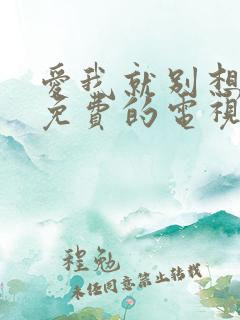 愛我就別想
免費的電視
程勉
未经同意禁止转载